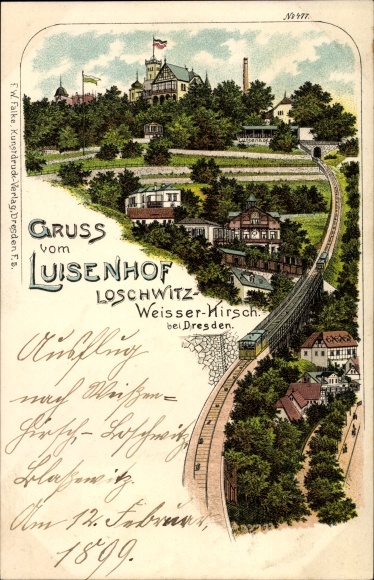 No 477.
F. W. Falke, Kunstdruck-Verlag, Dresden F. 5.
LUISENHOF
GRUSS
vom
LUISENHOF
LOSCHWITZ-
Weisser-Hirsch.
bei Dresden.
Ausflug
nach Weißen=
hirsch,- Loschwitz,
Blaßewitz.
Am 12. Februar,
1899.